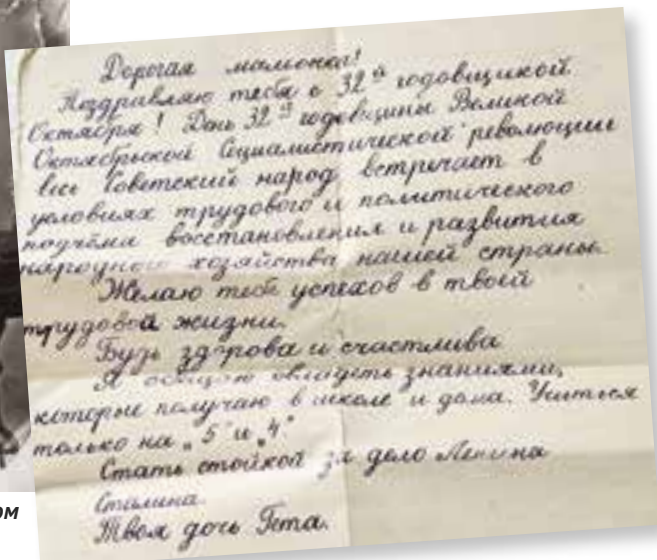 Дорогая мамочка!
Поздравляю тебя с 32й годовщиной
Октября! День 32й годовщины Великой
Октябрьской Социалистической революции
весь Советский народ встречает в
условиях трудового и политического
подъёма восстановления и развития
народного хозяйства нашей страны.
Желаю тебе успехов в твоей
трудовой жизни.
Будь здорова и счастлива
Я обещаю овладеть знаниями,
которые получаю в школе и дома. Учиться
только на „5" и „4"
Стать стойкой за дело Ленина
Сталина.
Твоя дочь Гета.
ом